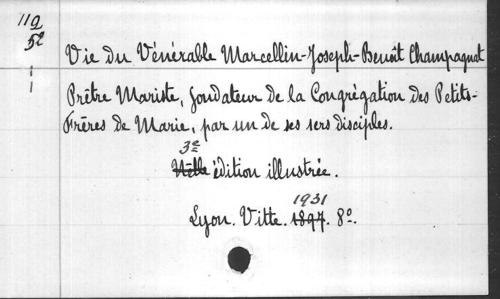 119
52
1
1
Vie du Vénérable Marcellin-Joseph-Benoît Champagnat
Prêtre Mariste, fondateur de la Congrégation des Petits-
Frères de Marie, par un de ses 1ers disciples.
3e
Nelle édition illustrée.
1931
Lyon. Vitte. 1897. 8o.